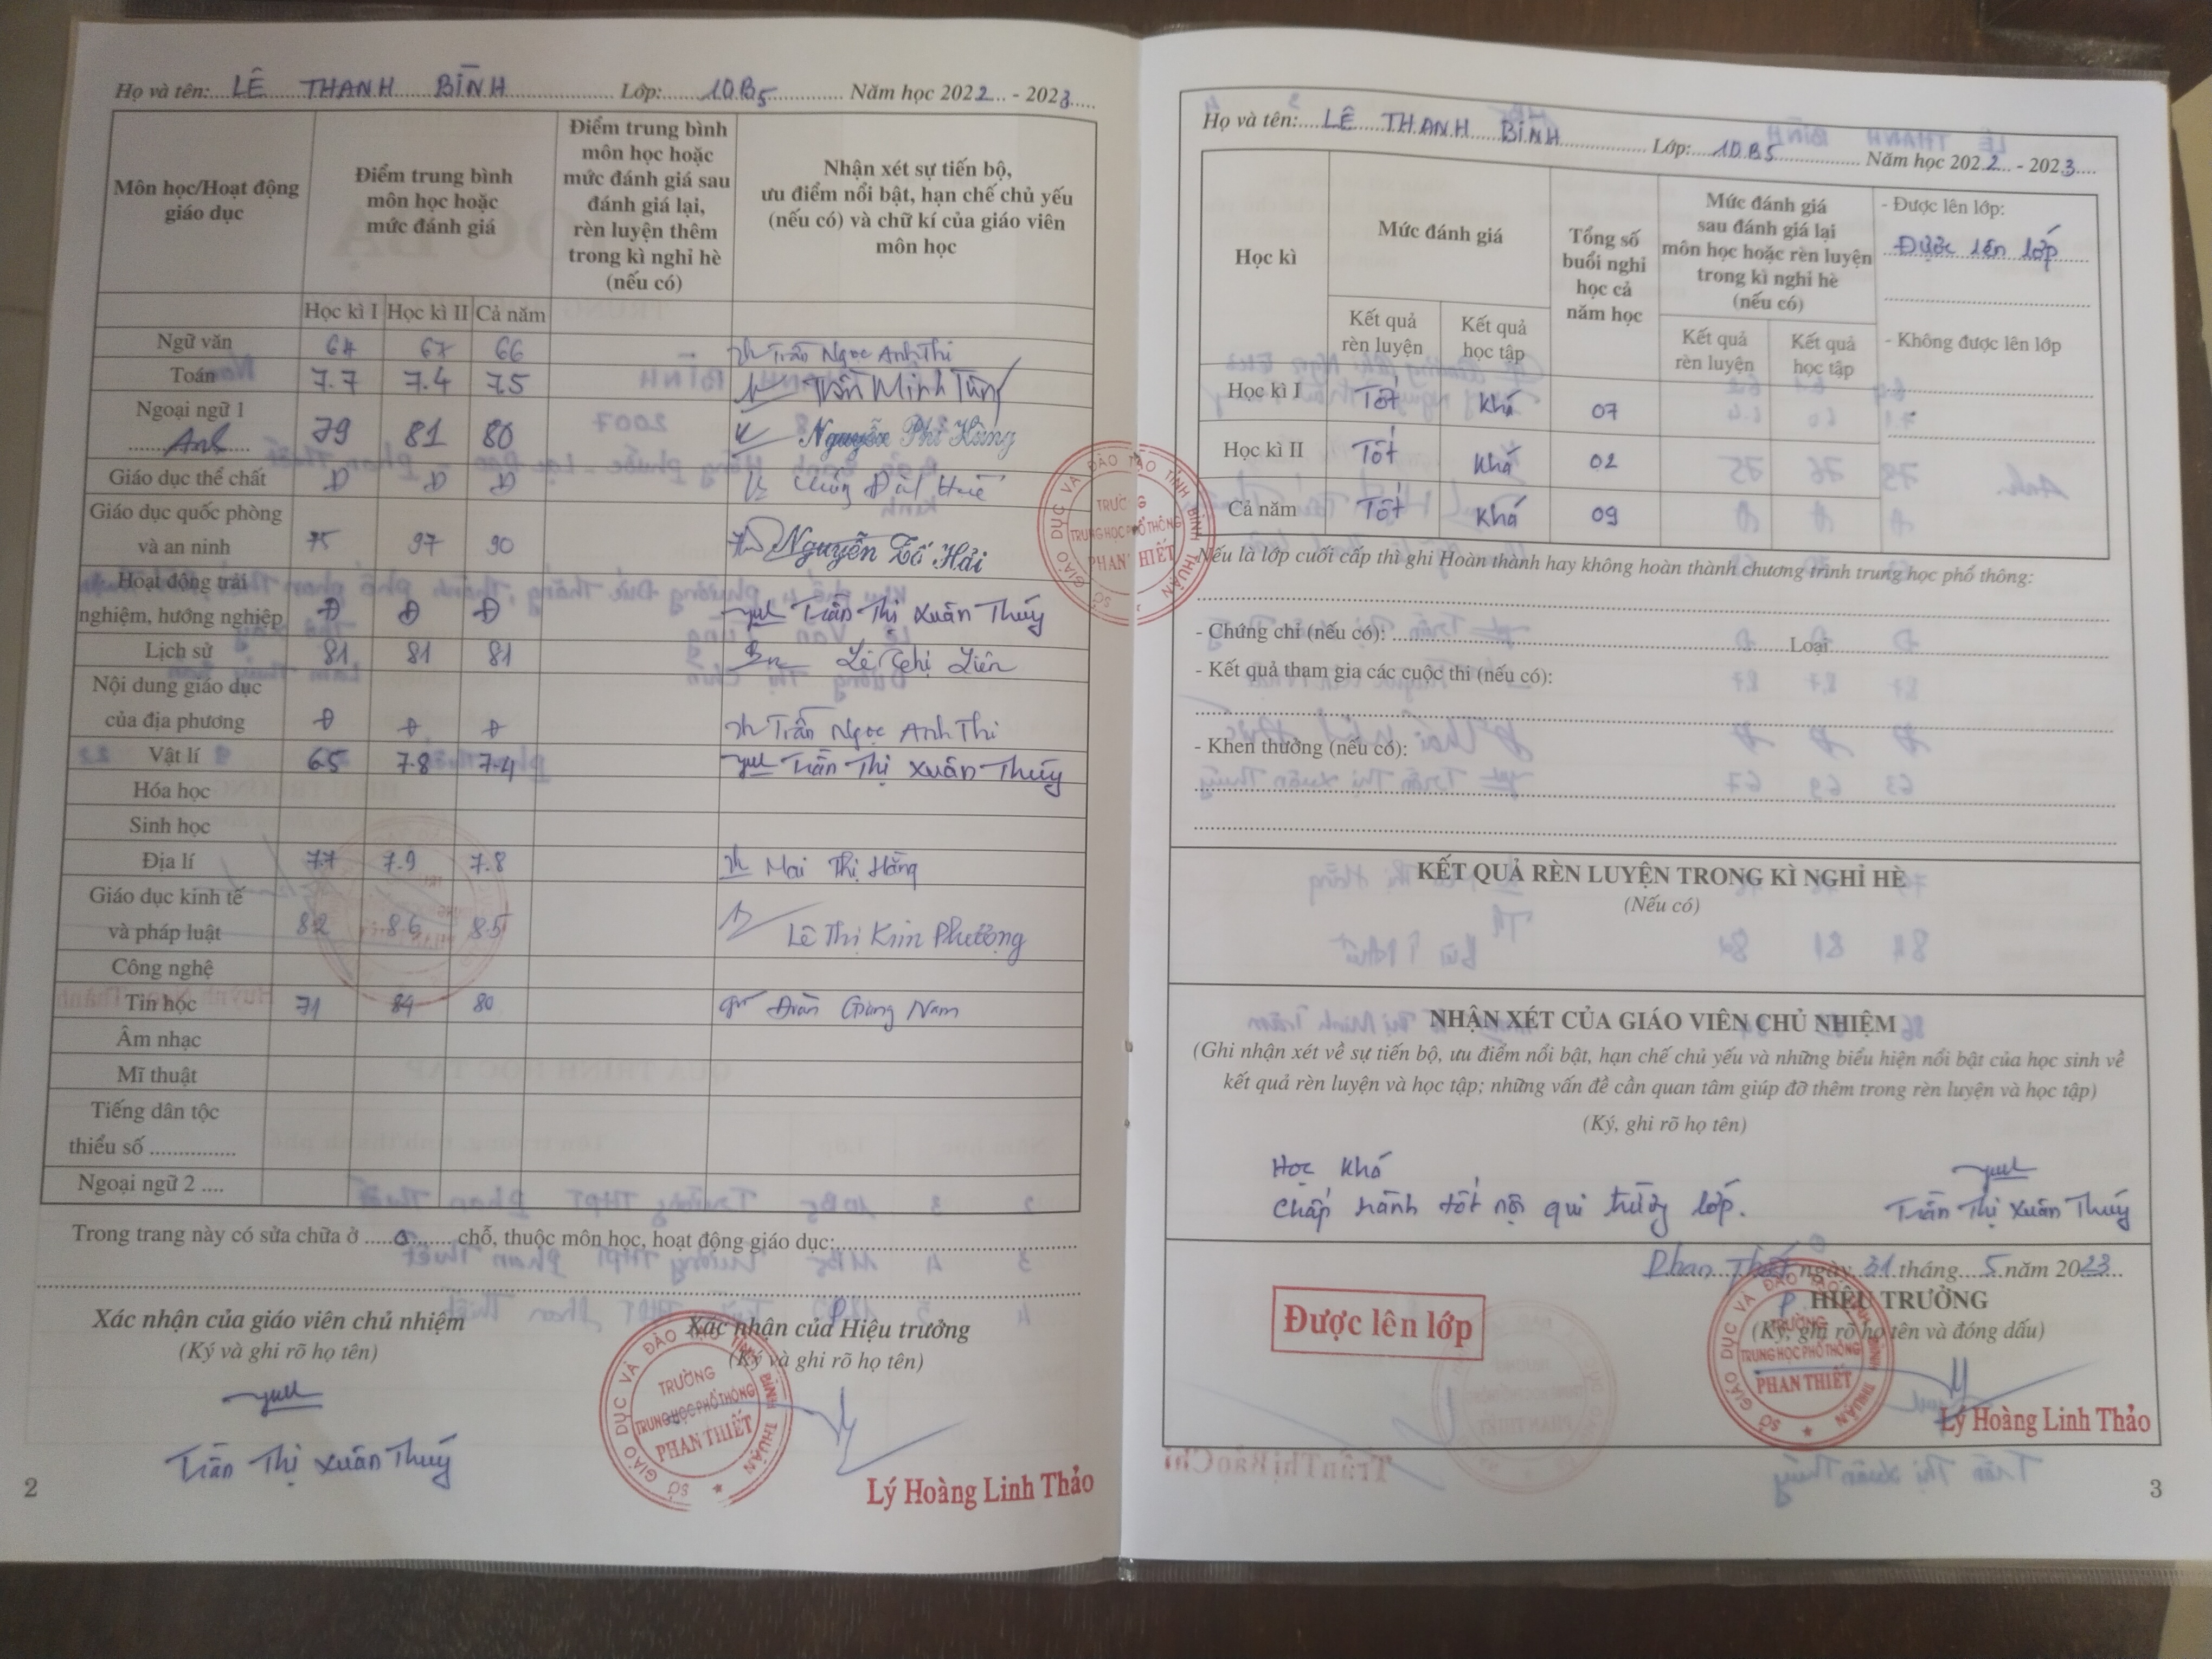 Họ và tên: LÊ THANH BÌNH Lớp: 10B5 Năm học 2022 - 2023
Môn học/Hoạt động giáo dục
Điểm trung bình môn học hoặc mức đánh giá
Điểm trung bình môn học hoặc mức đánh giá sau đánh giá lại, rèn luyện thêm trong kì nghỉ hè (nếu có)
Nhận xét sự tiến bộ, ưu điểm nổi bật, hạn chế chủ yếu (nếu có) và chữ kí của giáo viên môn học
Học kì I Học kì II Cả năm
Ngữ văn 64 67 66 Trần Ngọc Anh Thi
Toán 7.7 7.4 7.5 Trần Minh Tùng
Ngoại ngữ 1
Anh 79 81 80 Nguyễn Phi Hùng
Giáo dục thể chất Đ Đ Đ
Giáo dục quốc phòng
và an ninh 75 97 90 Nguyễn Hải
Hoạt động trải
nghiệm, hướng nghiệp Đ Đ Đ Trần Thị Xuân Thúy
Lịch sử 81 81 81 Lê Thị Liên
Nội dung giáo dục
của địa phương Đ Đ Đ Trần Ngọc Anh Thi
Vật lí 65 7.8 7.4 Trần Thị Xuân Thúy
Hóa học
Sinh học
Địa lí 77 7.9 7.8 Mai Thị Hằng
Giáo dục kinh tế
và pháp luật 82 8.6 8.5 Lê Thị Kim Phượng
Công nghệ
Tin học 71 84 80 Giang Nam
Âm nhạc
Mĩ thuật
Tiếng dân tộc
thiểu số
Ngoại ngữ 2 ....
Trong trang này có sửa chữa ở 0 chỗ, thuộc môn học, hoạt động giáo dục:
Xác nhận của giáo viên chủ nhiệm
(Ký và ghi rõ họ tên)
Trần Thị Xuân Thúy
P.
Xác nhận của Hiệu trưởng
(Ký và ghi rõ họ tên)
SỞ GIÁO DỤC VÀ ĐÀO TẠO TỈNH BÌNH THUẬN
TRƯỜNG
TRUNG HỌC PHỔ THÔNG
PHAN THIẾT
Lý Hoàng Linh Thảo
2
Họ và tên: LÊ THANH BÌNH Lớp: 10B5 Năm học 2022 - 2023
Học kì
Mức đánh giá
Kết quả rèn luyện
Kết quả học tập
Tổng số buổi nghỉ học cả năm học
Mức đánh giá sau đánh giá lại môn học hoặc rèn luyện trong kì nghỉ hè (nếu có)
Kết quả rèn luyện
Kết quả học tập
- Được lên lớp:
Được lên lớp
- Không được lên lớp
Học kì I Tốt Khá 07
Học kì II Tốt Khá 02
Cả năm Tốt Khá 09
SỞ GIÁO DỤC VÀ ĐÀO TẠO TỈNH BÌNH THUẬN
TRƯỜNG
TRUNG HỌC PHỔ THÔNG
PHAN THIẾT
Nếu là lớp cuối cấp thì ghi Hoàn thành hay không hoàn thành chương trình trung học phổ thông:
- Chứng chỉ (nếu có): Loại
- Kết quả tham gia các cuộc thi (nếu có):
- Khen thưởng (nếu có):
KẾT QUẢ RÈN LUYỆN TRONG KÌ NGHỈ HÈ
(Nếu có)
NHẬN XÉT CỦA GIÁO VIÊN CHỦ NHIỆM
(Ghi nhận xét về sự tiến bộ, ưu điểm nổi bật, hạn chế chủ yếu và những biểu hiện nổi bật của học sinh về
kết quả rèn luyện và học tập; những vấn đề cần quan tâm giúp đỡ thêm trong rèn luyện và học tập)
(Ký, ghi rõ họ tên)
Học khá
Chấp hành tốt nội qui trường lớp.
Trần Thị Xuân Thúy
Phan Thiết ngày 31 tháng 5 năm 2023
Được lên lớp
P. HIỆU TRƯỞNG
(Ký, ghi rõ họ tên và đóng dấu)
SỞ GIÁO DỤC VÀ ĐÀO TẠO TỈNH BÌNH THUẬN
TRƯỜNG
TRUNG HỌC PHỔ THÔNG
PHAN THIẾT
Lý Hoàng Linh Thảo
3